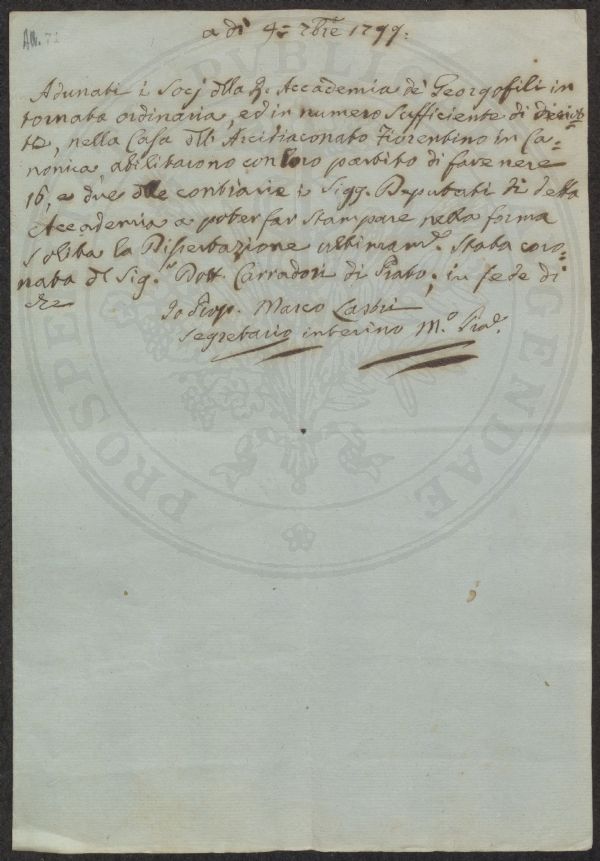 AA. 71
a dì 4 = 7bre 1799:
Adunati i Socj dlla R. Accademia de' Georgofili in
tornata ordinaria, ed in numero sufficiente di diciot=
to, nella Casa dll' Arcidiaconato Fiorentino in Ca=
nonica, abilitarono con loro partito di fave nere
16, e due dlle contrarie i Sigg. Deputati di detta
Accademia a poter far stampare nella forma
solita la Dissertazione ultimam.e stata coro=
nata dl Sig.r Dott. Carradori di Prato; in fede di
che
Io Prop. Marco Lastri
Segretario interino M.o Pro.
PROSPERITATI PUBLICAE AUGENDAE